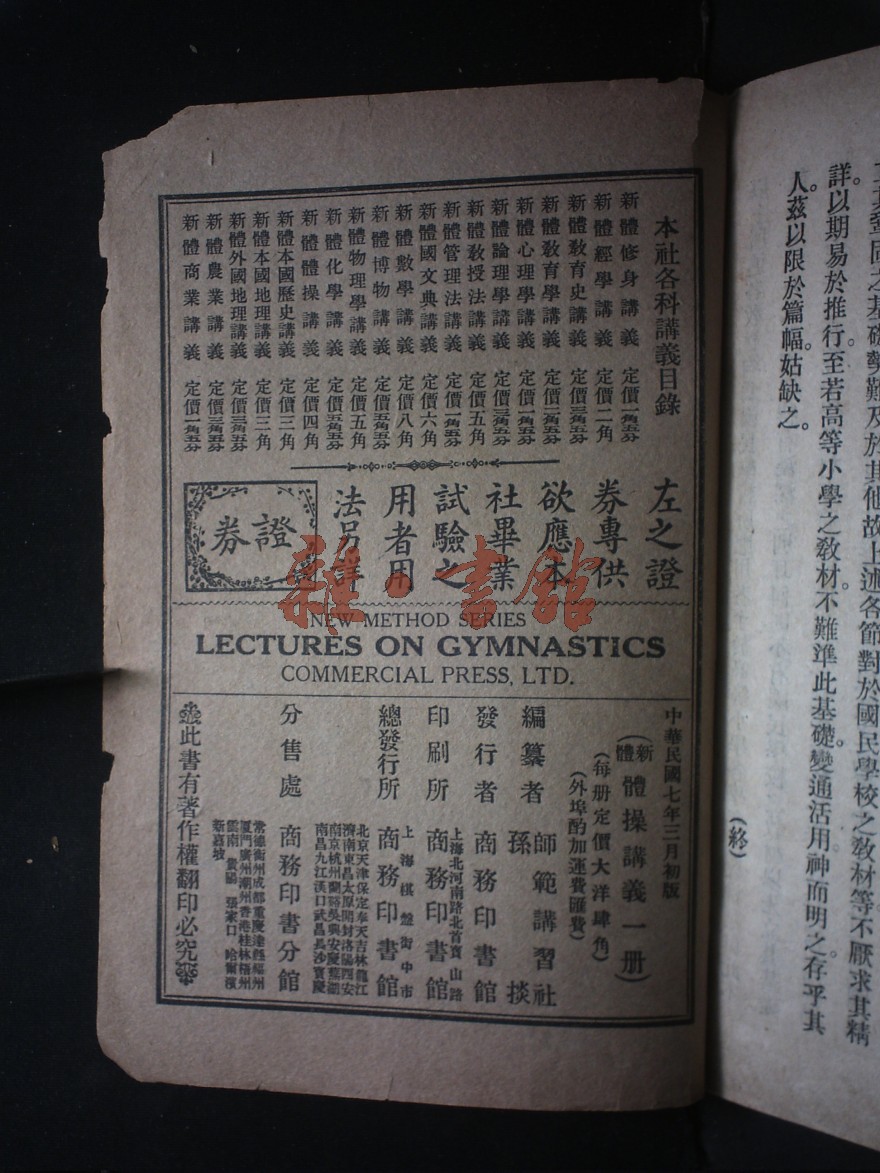 丁其鞏固之基礎勢難及於其他故上述各節對於國民學校之教材等不厭求其精
詳。以期易於推行。至若高等小學之教材。不難準此基礎。變通活用。神而明之。存乎其
人。茲以限於篇幅。姑缺之。
(終)
本社各科講義目錄
新體修身講義 定價一角五分
新體經學講義 定價二角
新體教育史講義 定價三角五分
新體教育學講義 定價三角五分
新體心理學講義 定價一角五分
新體論理學講義 定價一角五分
新體教授法講義 定價五角
新體管理法講義 定價一角五分
新體國文典講義 定價六角
新體數學講義 定價八角
新體博物講義 定價五角五分
新體物理學講義 定價五角
新體化學講義 定價三角五分
新體體操講義 定價四角
新體本國歷史講義 定價三角
新體本國地理講義 定價三角
新體外國地理講義 定價三角五分
新體農業講義 定價一角五分
新體商業講義 定價一角五分
左之證
券專供
欲應本
社畢業
試驗之
用者用
法另詳
證券
雜·書館
NEW METHOD SERIES
LECTURES ON GYMNASTICS
COMMERCIAL PRESS, LTD.
中華民國七年三月初版
(新體體操講義一册)
(每册定價大洋肆角)
(外埠酌加運費匯費)
編纂者 師範講習社 孫掞
發行者 商務印書館
印刷所 上海北河南路北首寶山路 商務印書館
總發行所 上海棋盤街中市 商務印書館
分售處 商務印書分館
北京天津保定奉天吉林龍江
濟南東昌太原開封洛陽西安
南京杭州蘭谿吳興安慶蕪湖
南昌九江漢口武昌長沙寶慶
常德衡州成都重慶達縣福州
廈門廣州潮州香港桂林梧州
雲南 貴陽 張家口 哈爾濱
新嘉坡
此書有著作權翻印必究